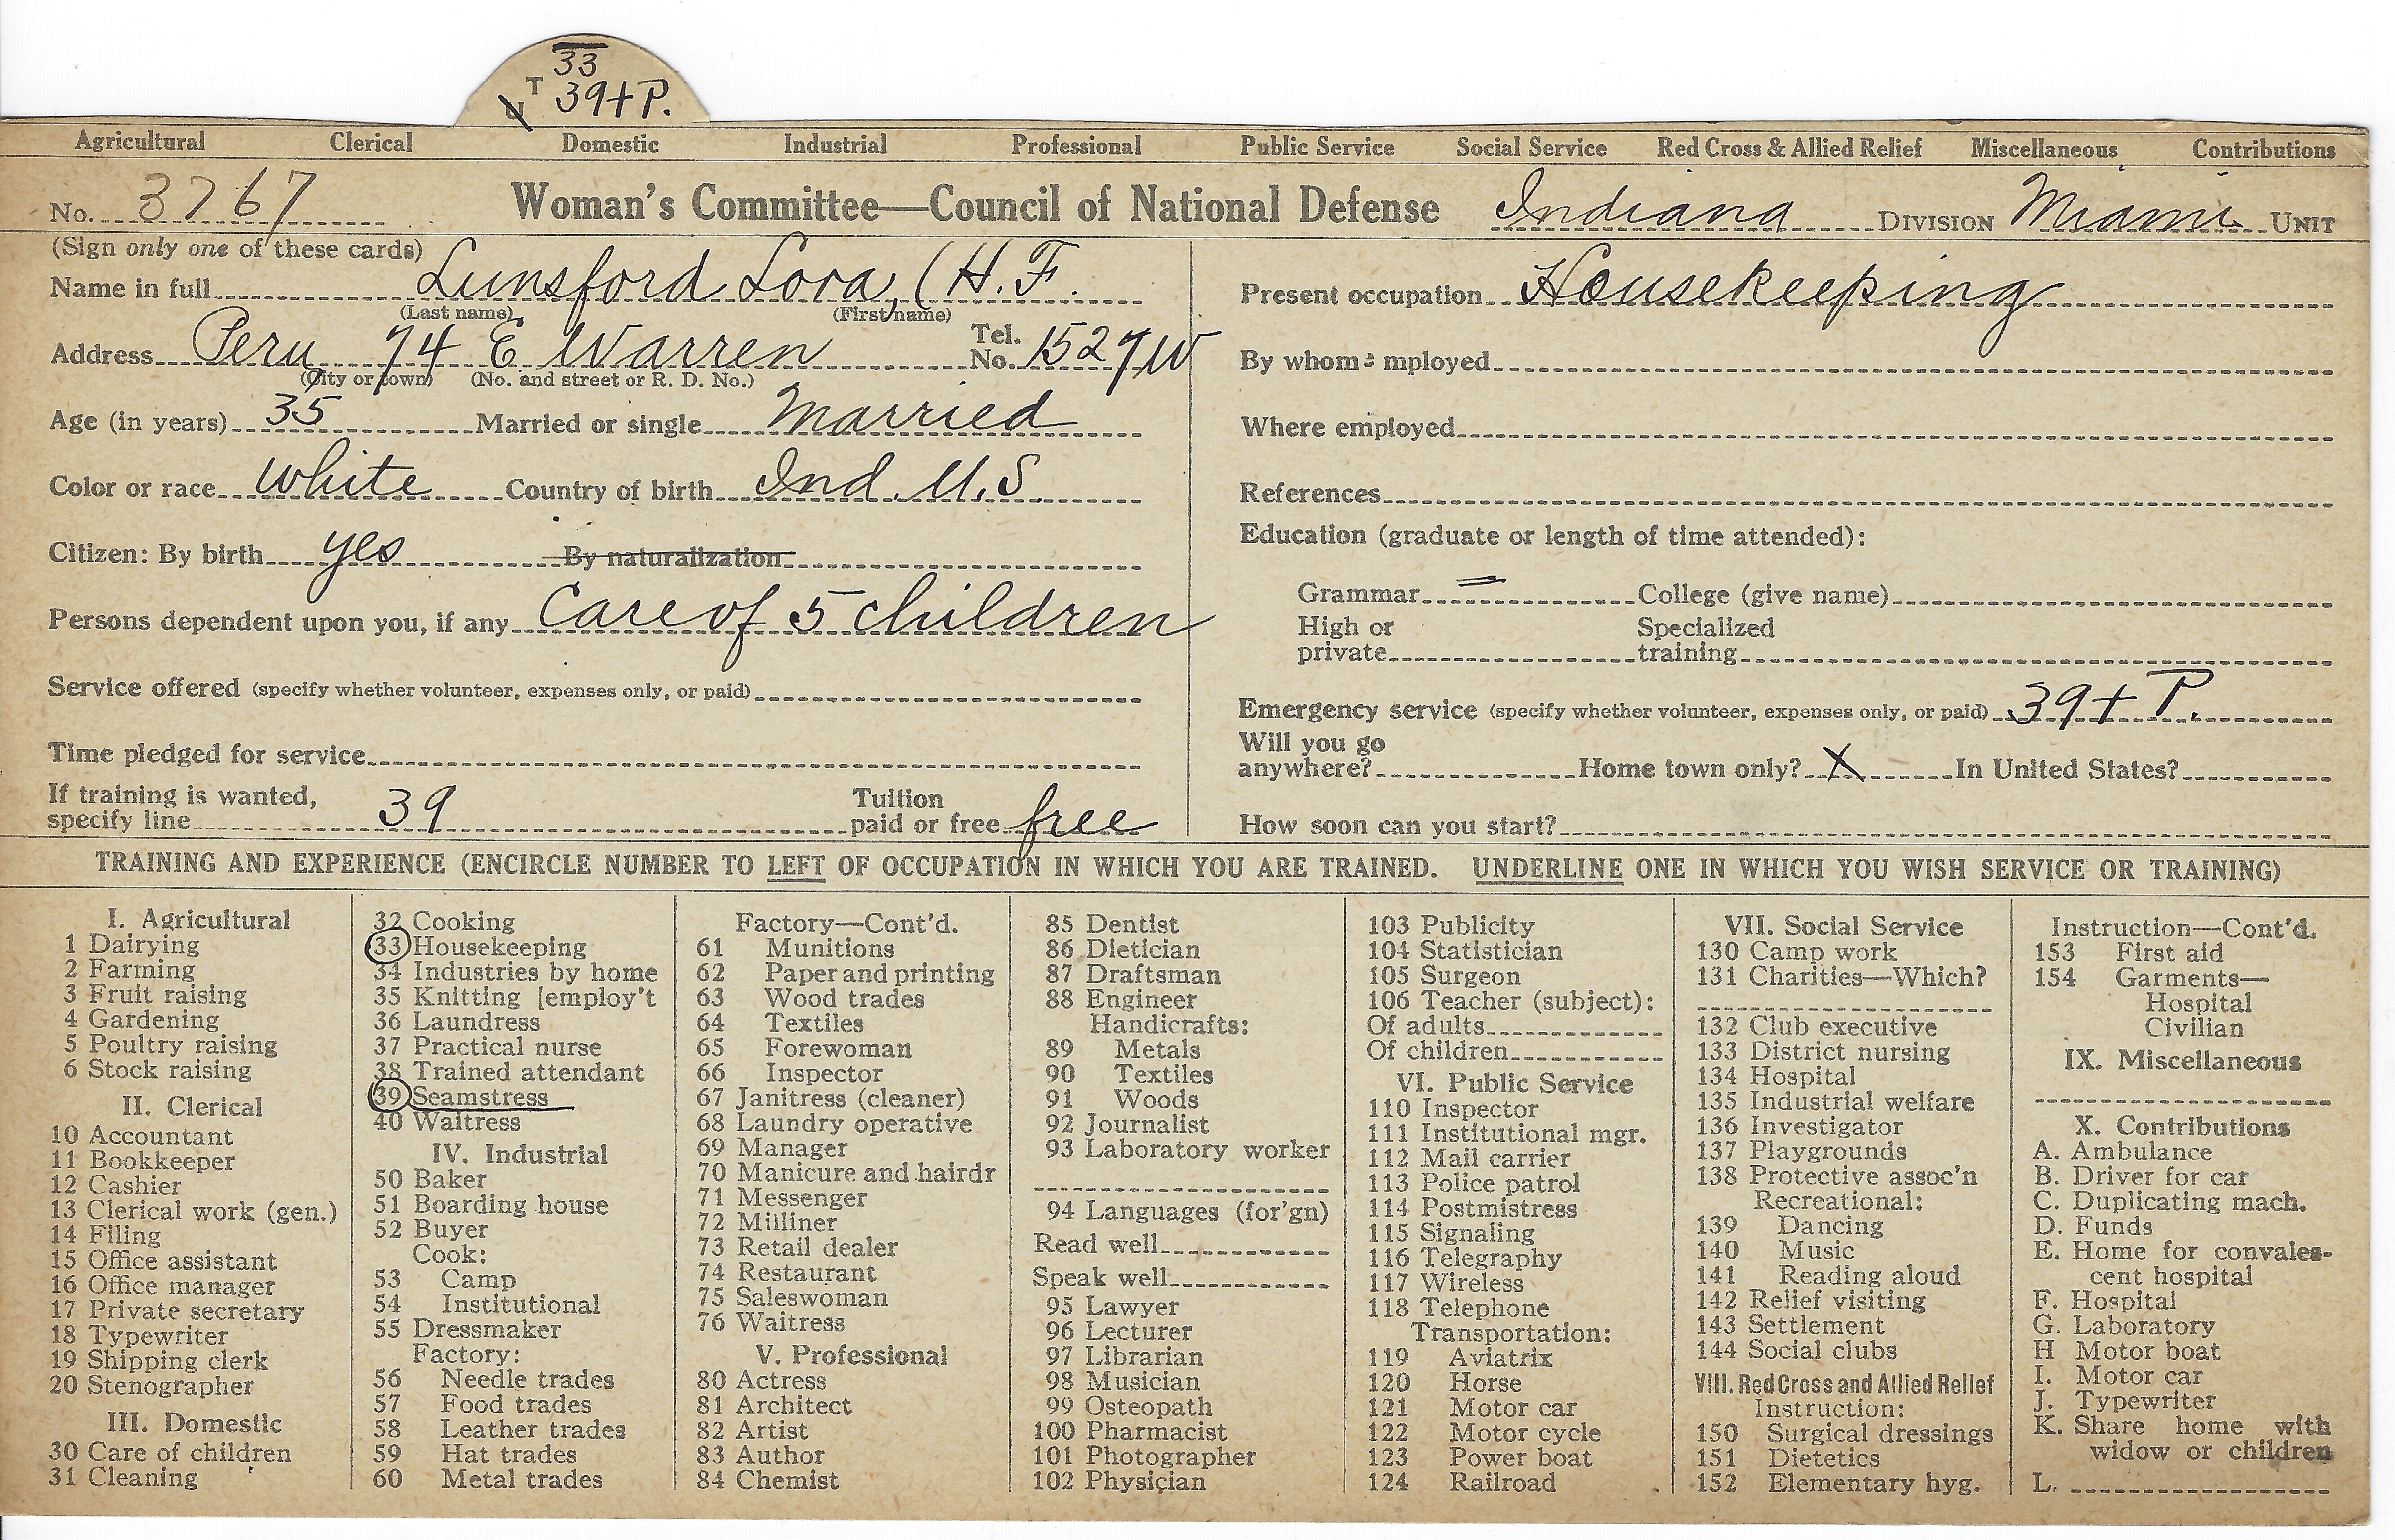 33
T 39+P.
Agricultural Clerical Domestic Industrial Professional Public Service Social Service Red Cross & Allied Relief Miscellaneous Contributions
No. 3767 Woman's Committee—Council of National Defense Indiana DIVISION Miami UNIT
(Sign only one of these cards)
Name in full Lunsford Lora, (H. F.
(Last name) (First name)
Address Peru 74 E Warren Tel. No. 1527W
(City or town) (No. and street or R. D. No.)
Age (in years) 35 Married or single Married
Color or race white Country of birth Ind. U.S.
Citizen: By birth yes By naturalization
Persons dependent upon you, if any Care of 5 children
Service offered (specify whether volunteer, expenses only, or paid)
Time pledged for service
If training is wanted,
specify line 39 Tuition paid or free free
Present occupation Housekeeping
By whom employed
Where employed
References
Education (graduate or length of time attended):
Grammar = College (give name)
High or Specialized
private training
Emergency service (specify whether volunteer, expenses only, or paid) 39+ P.
Will you go
anywhere? Home town only? X In United States?
How soon can you start?
TRAINING AND EXPERIENCE (ENCIRCLE NUMBER TO LEFT OF OCCUPATION IN WHICH YOU ARE TRAINED. UNDERLINE ONE IN WHICH YOU WISH SERVICE OR TRAINING)
I. Agricultural
1 Dairying
2 Farming
3 Fruit raising
4 Gardening
5 Poultry raising
6 Stock raising
II. Clerical
10 Accountant
11 Bookkeeper
12 Cashier
13 Clerical work (gen.)
14 Filing
15 Office assistant
16 Office manager
17 Private secretary
18 Typewriter
19 Shipping clerk
20 Stenographer
III. Domestic
30 Care of children
31 Cleaning
32 Cooking
33 Housekeeping
34 Industries by home
35 Knitting [employ't
36 Laundress
37 Practical nurse
38 Trained attendant
39 Seamstress
40 Waitress
IV. Industrial
50 Baker
51 Boarding house
52 Buyer
Cook:
53 Camp
54 Institutional
55 Dressmaker
Factory:
56 Needle trades
57 Food trades
58 Leather trades
59 Hat trades
60 Metal trades
Factory—Cont'd.
61 Munitions
62 Paper and printing
63 Wood trades
64 Textiles
65 Forewoman
66 Inspector
67 Janitress (cleaner)
68 Laundry operative
69 Manager
70 Manicure and hairdr
71 Messenger
72 Milliner
73 Retail dealer
74 Restaurant
75 Saleswoman
76 Waitress
V. Professional
80 Actress
81 Architect
82 Artist
83 Author
84 Chemist
85 Dentist
86 Dietician
87 Draftsman
88 Engineer
Handicrafts:
89 Metals
90 Textiles
91 Woods
92 Journalist
93 Laboratory worker
94 Languages (for'gn)
Read well
Speak well
95 Lawyer
96 Lecturer
97 Librarian
98 Musician
99 Osteopath
100 Pharmacist
101 Photographer
102 Physician
103 Publicity
104 Statistician
105 Surgeon
106 Teacher (subject):
Of adults
Of children
VI. Public Service
110 Inspector
111 Institutional mgr.
112 Mail carrier
113 Police patrol
114 Postmistress
115 Signaling
116 Telegraphy
117 Wireless
118 Telephone
Transportation:
119 Aviatrix
120 Horse
121 Motor car
122 Motor cycle
123 Power boat
124 Railroad
VII. Social Service
130 Camp work
131 Charities—Which?
132 Club executive
133 District nursing
134 Hospital
135 Industrial welfare
136 Investigator
137 Playgrounds
138 Protective assoc'n
Recreational:
139 Dancing
140 Music
141 Reading aloud
142 Relief visiting
143 Settlement
144 Social clubs
VIII. Red Cross and Allied Relief
Instruction:
150 Surgical dressings
151 Dietetics
152 Elementary hyg.
Instruction—Cont'd.
153 First aid
154 Garments—
Hospital
Civilian
IX. Miscellaneous
X. Contributions
A. Ambulance
B. Driver for car
C. Duplicating mach.
D. Funds
E. Home for convales-
cent hospital
F. Hospital
G. Laboratory
H Motor boat
I. Motor car
J. Typewriter
K. Share home with
widow or children
L.